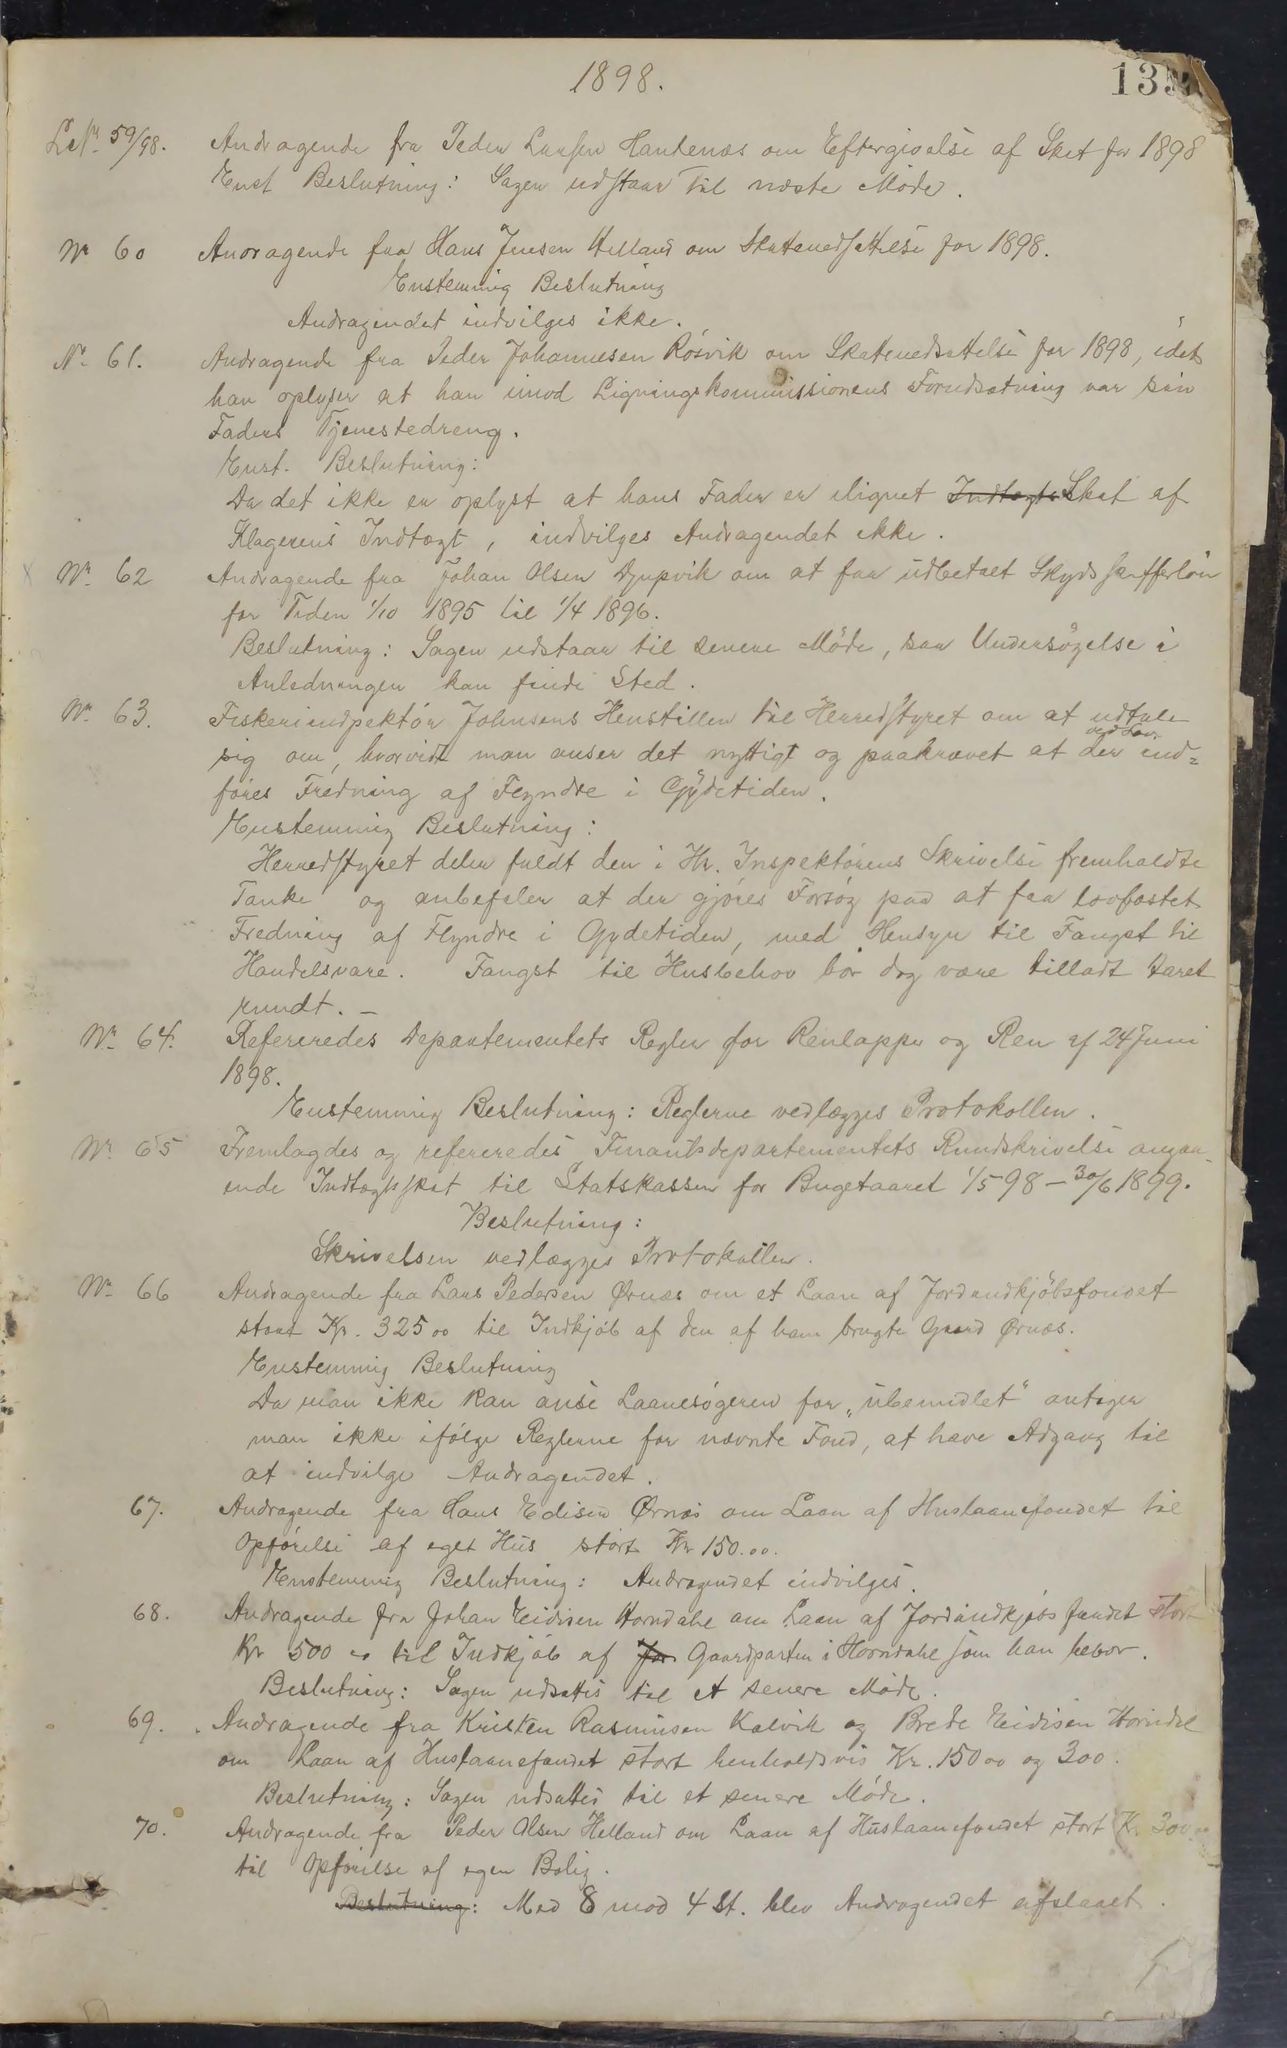 1898.
135
L. Nr. 59/98. Andragende fra Peder Larsen Handenæs om Eftergivelse af Skat for 1898
Enst Beslutning: Sagen udstaar til næste Møde.
Nr 60 Andragende fra Hans Jensen Helland om Skattenedsættelse for 1898.
Enstemmig Beslutning
Andragendet indvilges ikke.
Nr. 61. Andragende fra Peder Johannesen Rösvik om Skattenedsættelse for 1898, idet
han oplyser at han imod Ligningskommissionens Forudsætning var sin
Faders Tjenestedreng.
Enst. Beslutning:
Da det ikke er oplyst at hans Fader er ilignet Indtægts Skat af
Klagerens Indtægt, indvilges Andragendet ikke.
x Nr. 62 Andragende fra Johan Olsen Djupvik om at faa udbetalt Skydsskafferløn
for Tiden 1/10 1895 til 1/4 1896.
Beslutning: Sagen udstaar til senere Möde, saa Undersögelse i
Anledningen kan finde Sted.
Nr. 63. Fiskeriindpektör Johnsens Henstillen til Herredstyret om at udtale
sig om, hvorvidt man anser det nyttigt og paakrævet at der ved Lov ind=
föres Fredning af Flyndre i Gydetiden.
Enstemmig Beslutning:
Herredstyret deler fuldt den i Hr. Inspektörens Skrivelse fremholdte
Tanke og anbefaler at der gjöres Forsög paa at faa lovfæstet
Fredning af Flyndre i Gydetiden, med Hensyn til Fangst til
Handelsvare. Fangst til Husbehov bör dog være tilladt Aaret
rundt. –
Nr. 64. Refereredes Departementets Regler for Renlapper og Ren af 24 Juni
1898.
Enstemmig Beslutning: Reglerne vedlægges Protokollen.
Nr. 65 Fremlagdes og refereredes Finantsdepartementets Rundskrivelse angaa-
ende Indtægtsskat til Statskassen for Bugetaaret 1/5 98 – 30/6 1899.
Beslutning:
Skrivelsen vedlægges Protokollen.
Nr. 66 Andragende fra Lars Pedersen Ørnæs om et Laan af Jordindkjöbsfondet
stort Kr. 325 00 til Indkjöb af den af ham brugte Gaard Ørnæs.
Enstemmig Beslutning
Da man ikke kan anse Laanesögeren for „ubemidlet" antager
man ikke ifölge Reglerne for nævnte Fond, at have Adgang til
at indvilge Andragendet.
67. Andragende fra Hans Edisen Ørnæs om Laan af Huslaanefondet til
Opförelse af eget Hus stort Kr 150.00.
Enstemmig Beslutning: Andragendet indvilges.
68. Andragende fra Johan Eidisen Horndahl om Laan af Jordindkjøbsfondet stort
Kr 500 00 til Indkjöb af Jor Gaardparten i Horndahl som han bebor.
Beslutning: Sagen udsættes til et senere Möde.
69. Andragende fra Kristen Rasmusen Kalvik og Brede Eidisen Horndal
om Laan af Huslaanefondet stort henholdsvis Kr. 150 00 og 300.
Beslutning: Sagen udsættes til et senere Möde.
70. Andragende fra Peder Olsen Helland om Laan af Huslaanefondet stort Kr. 300 00
til Opförelse af egen Bolig.
Beslutning: Med 8 mod 4 St. blev Andragendet afslaaet.